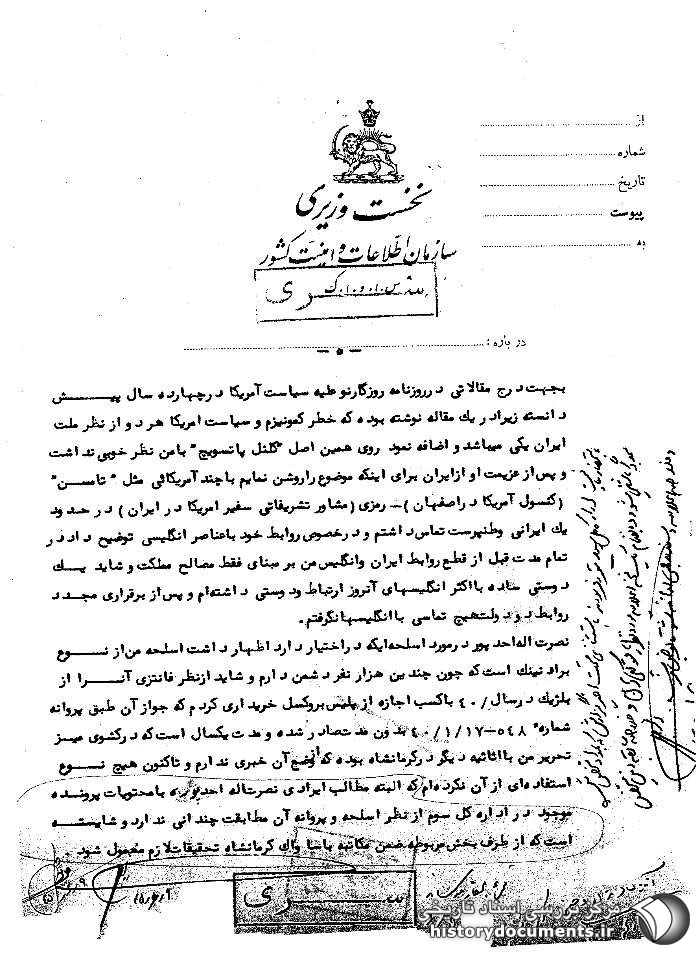 از
شماره
تاریخ
پیوست
به
نخست وزیری
سازمان اطلاعات و امنیت کشور
سری
درباره :
- ۵ -
بجهت درج مقالاتی در روزنامه روزگارنو علیه سیاست آمریکا در چهارده سال پیش
دانسته زیرا در یك مقاله نوشته بوده که خطر کمونیزم و سیاست امریکا هر دو از نظر ملت
ایران یکی میباشد و اضافه نمود روی همین اصل "کلنل یاتسویچ" بامن نظر خوبی نداشت
و پس از عزیمت او از ایران برای اینکه موضوع را روشن نمایم با چند آمریکائی مثل "تامسن"
(کنسول آمریکا در اصفهان) - رمزی (مشاور تشریفاتی سفیر امریکا در ایران) در حدود
یك ایرانی وطنپرست تماس داشتم و در خصوص روابط خود با عناصر انگلیسی توضیح داد در
تمام مدت قبل از قطع روابط ایران وانگلیس من بر مبنای فقط مصالح مملکت و شاید یك
دوستی ساده با اکثر انگلیسهای آنروز ارتباط ودوستی داشته‌ام و پس از برقراری مجدد
روابط دو دولت هیچ تماسی با انگلیسها نگرفتم.
نصرت اله احد پور در مورد اسلحه ایکه در اختیار دارد اظهار داشت اسلحه من از نوع
براونینك است که چون چندین هزار نفر دشمن دارم و شاید از نظر فانتزی آنرا از
بلژیك در سال ۴۰ با کسب اجازه از پلیس بروکسل خریداری کردم که جواز آن طبق پروانه
شماره ۵۴۸-۴۰/۱/۱۷ بدون مدت صادر شده و مدت یکسال است که در کشوی میز
تحریر من با اثاثیه دیگر در کرمانشاه بوده که از وضع آن خبری ندارم و تاکنون هیچ نوع
استفاده‌ای از آن نکرده‌ام که البته مطالب ایرادی نصرت اله احد پور با محتویات پرونده
موجود در اداره کل سوم از نظر اسلحه و پروانه آن مطابقت چندانی ندارد و شایسته
است که از طرف بخش مربوطه ضمن مکاتبه با ساواك کرمانشاه تحقیقات لازم معمول شود.
سری
مرکز بررسی اسناد تاریخی
historydocuments.ir